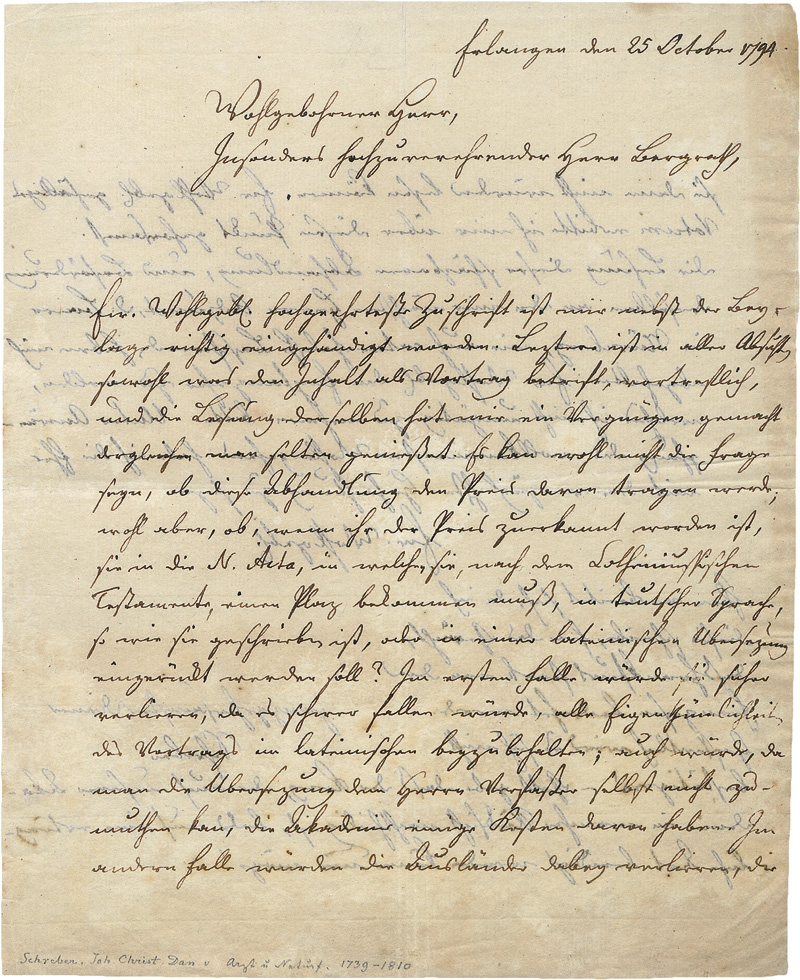 Erlangen den 25 October 1794.
Wohlgebohrner Herr,
Insonders hochzuverehrender Herr Bergrath,
Ew. Wohlgeb. hochgeehrteste Zuschrift ist mir nebst der Bey-
lage richtig eingehändigt worden. Leztere ist in aller Absicht,
sowohl was den Inhalt als Vortrag betrift, vortreflich,
und die Lesung derselben hat mir ein Vergnügen gemacht
dergleichen man selten genießet. Es kan wohl nicht die Frage
seyn, ob diese Abhandlung den Preis davon tragen werde;
wohl aber, ob, wenn ihr der Preis zuerkannt worden ist,
sie in die N. Acta, in welchen sie, nach dem Cotheniusischen
Testamente, einen Plaz bekommen muß, in teutscher Sprache,
so wie sie geschrieben ist, oder in einer lateinischen Ubersezung
eingerückt werden soll? Im ersten Falle würde sie sicher
verlieren, da es schwer fallen würde, alle Eigenthümlichkeiten
des Vortrags im lateinischen beyzubehalten; auch würde, da
man die Ubersezung dem Herrn Verfaßer selbst nicht zu-
muthen kan, die Akademie einige Kosten davon haben. Im
andern Falle würden die Ausländer dabey verlieren, die
Schreber, Joh. Christ. Dan. v. Arzt u. Naturf. 1739-1810